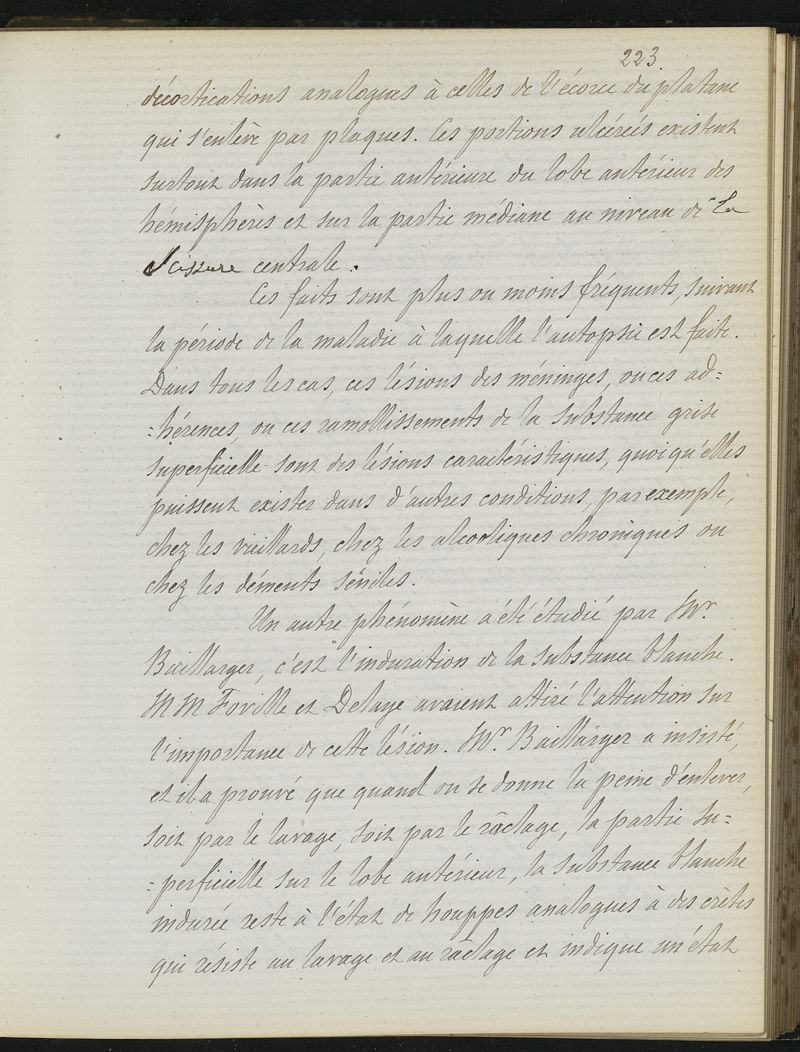 223
décortications analogues à celles de l'écorce du platane
qui s'enlève par plaques. Ces portions ulcérées existent
surtout dans la partie antérieure du lobe antérieur des
hémisphères et sur la partie médiane au niveau de la
Scissure centrale.
Ces faits sont plus ou moins fréquents, suivant
la période de la maladie à laquelle l'autopsie est faite.
Dans tous les cas, ces lésions des méninges, ou ces ad=
=hérences, ou ces ramollissements de la substance grise
superficielle sont des lésions caractéristiques, quoiqu'elles
puissent exister dans d'autres conditions, par exemple,
chez les vieillards, chez les alcooliques chroniques ou
chez les déments séniles.
Un autre phénomène a été étudié par Mr
Baillarger, c'est l'induration de la substance blanche.
MM Foville et Delaye avaient attiré l'attention sur
l'importance de cette lésion. Mr. Baillarger a insisté,
et il a prouvé que quand on se donne la peine d'enlever,
soit par le lavage, soit par le râclage, la partie su=
=perficielle sur le lobe antérieur, la substance blanche
indurée reste à l'état de houppes analogues à des crêtes
qui résiste au lavage et au râclage et indique un état